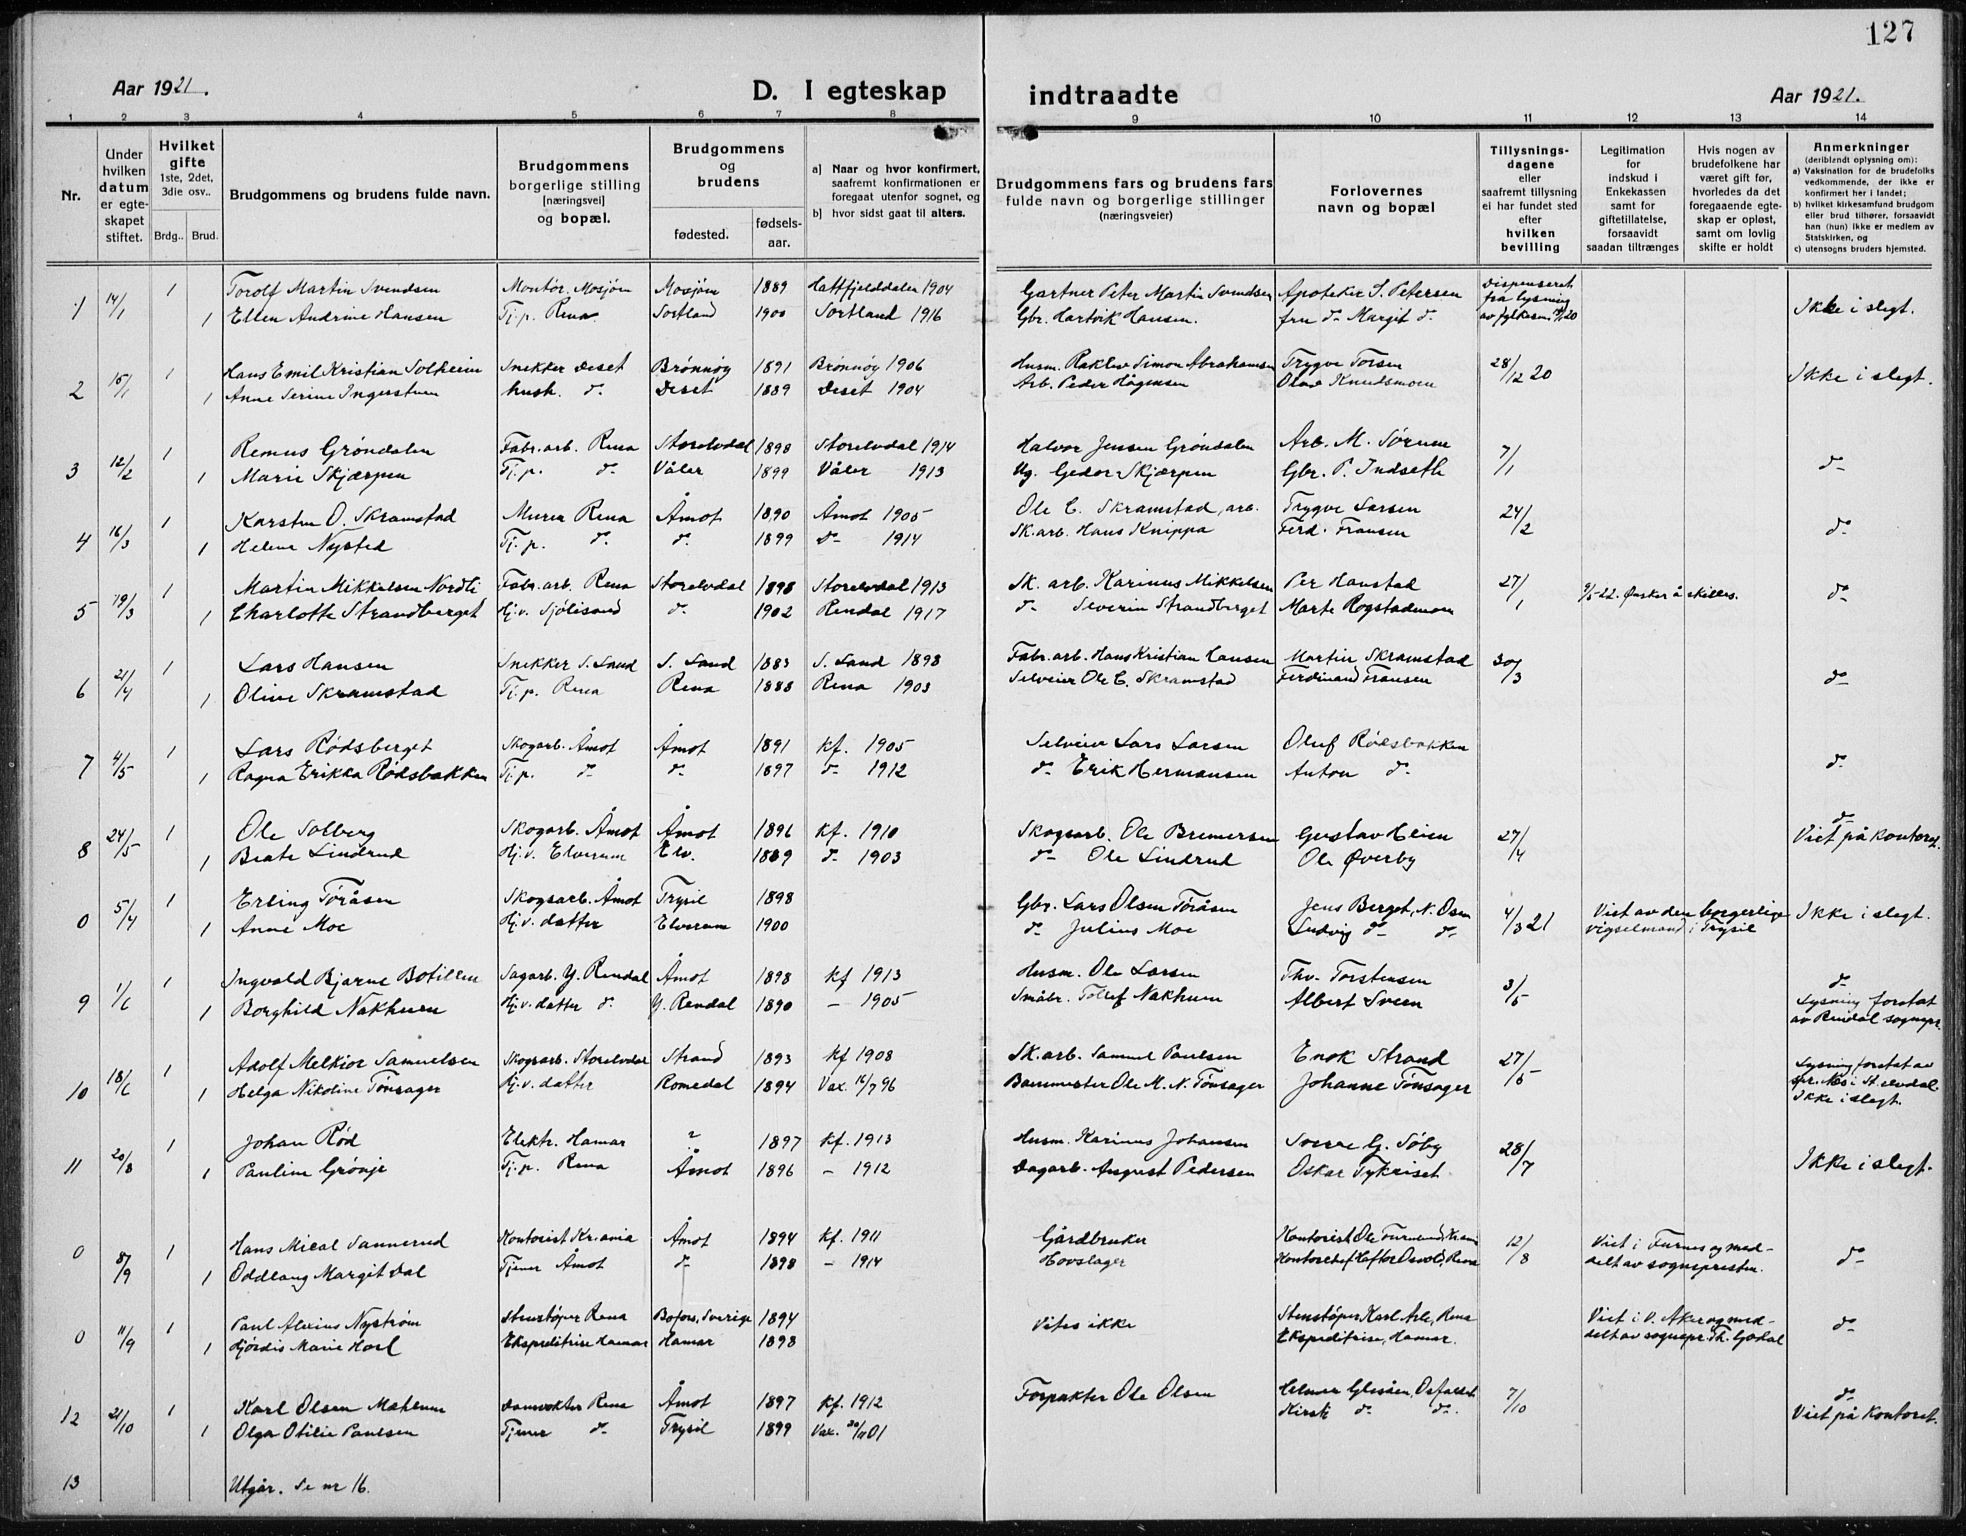 127
Aar 1921.
D. I egteskap indtraadte
Aar 1921.
1 2 3 4 5 6 7 8 9 10 11 12 13 14
Nr.
Under hvilken datum er egteskapet stiftet.
Hvilket gifte 1ste, 2det, 3die osv..
Brdg.. Brud.
Brudgommens og brudens fulde navn.
Brudgommens borgerlige stilling [næringsvei] og bopæl.
Brudgommens og brudens
fødested. fødsels-aar.
a) Naar og hvor konfirmert, saafremt konfirmationen er foregaat utenfor sognet, og
b) hvor sidst gaat til alters.
Brudgommens fars og brudens fars fulde navn og borgerlige stillinger (næringsveier)
Forlovernes navn og bopæl
Tillysnings-dagene eller saafremt tillysning ei har fundet sted efter hvilken bevilling
Legitimation for indskud i Enkekassen samt for giftetillatelse, forsaavidt saadan tiltrænges
Hvis nogen av brudefolkene har været gift før, hvorledes da det foregaaende egteskap er opløst, samt om lovlig skifte er holdt
Anmerkninger (deriblandt oplysning om):
a) Vaksination for de brudefolks vedkommende, der ikke er konfirmert her i landet;
b) hvilket kirkesamfund brudgom eller brud tilhører, forsaavidt han (hun) ikke er medlem av Statskirken, og
c) utensogns bruders hjemsted.
1 14/1 1 Torolf Martin Svendsen Montør. Mosjøen Mosjøen 1889 Hattfjelddalen 1904 Gartner Peter Martin Svendsen Apoteker S. Petersen Dispenseret fra lysning
1 Ellen Andrine Hansen Tj.p. Rena Sortland 1900 Sortland 1916 Gbr. Hartvik Hansen. fru do Margit do. av fylkesm. 20 Ikke i slegt.
2 15/1 1 Hans Emil Kristian Solheim Snekker Deset Brønnøy 1891 Brønnøy 1906 Husm. Simon Abrahamsen Trygve Torsen 28/12 20
1 Anne Serine Ingerstuen hush. do. Deset 1889 Deset 1904 Arb. Peder Hågensen Olav Knudsmoen Ikke i slegt.
3 12/2 1 Remus Grøndalen Fabr.arb. Rena Storelvdal 1898 Storelvdal 1914 Halvor Jensen Grøndalen Arb. M. Sørum 7/1
1 Marie Skjærpen Tj.p. do Våler 1899 Våler 1913 Ug. Gedor Skjærpen Gbr. P. Indseth do
4 16/3 1 Karsten O. Skramstad Murer Rena Åmot 1890 Åmot 1905 Ole C. Skramstad, arb. Trygve Larsen 24/2
1 Helene Nysted Tj.p. do. do. 1899 do 1914 Sk.arb. Hans Knippa Ferd. Fransen do
5 19/3 1 Martin Mikkelsen Nordli Fabr.arb. Rena Storelvdal 1898 Storelvdal 1913 Sk.arb. Karinus Mikkelsen Per Haustad 27/1 9/5-22. Ønsker å skilles.
1 Charlotte Strandberget Hj.v. Sjølisand do. 1902 Rendal 1917 do Severin Strandberget Marte Rogstadmoen do
6 21/4 1 Lars Hansen Snekker S. Sand S. Sand 1883 S. Sand 1898 Fabr.arb. Hans Kristian Hansen Martin Skramstad 30/3
1 Oline Skramstad Tj.p. Rena Rena 1888 Rena 1903 Selveier Ole C. Skramstad Ferdinand Fransen do
7 4/5 1 Lars Rødsberget Skogarb. Åmot Åmot 1891 kf. 1905 Selveier Lars Larsen Oluf Rødsbakken
1 Ragna Erikka Rødsbakken Tj.p. do do. 1897 do 1912 do Erik Hermansen Anton do. do.
8 24/5 1 Ole Solberg Skogarb. Åmot Åmot 1896 kf. 1910 Skogsarb. Ole Bremersen Gustav Heien 27/4 do
1 Beate Lindrud Hj.v. Elverum Elv. 1889 do 1903 do Ole Lindrud Ole Øverby Viet på kontoret.
0 5/4 1 Erling Tøråsen Skogsarb. Åmot Trysil 1898 Gbr. Lars Olsen Tøråsen Jens Berget, N. Osen 4/3 21 Viet av den borgerlige Ikke i slegt.
1 Anne Moe Hj.v. datter Elverum 1900 do Julius Moe Ludvig do do vigselmand i Trysil
9 1/6 1 Ingvald Bjarne Botillen Sagarb. Y. Rendal Åmot 1898 kf 1913 Husm. Ole Larsen Thv. Torstensen 3/5 do
1 Borghild Nakhuen Hj.v. datter do. Y. Rendal 1890 – 1905 Småbr. Tollef Nakhuen Albert Sveen Lysning foretat av Rendal sognepr.
10 18/6 1 Adolf Melkior Samuelsen Skogsarb. Storelvdal Strand 1893 kf 1908 Sk.arb. Samuel Paulsen Enok Strand 27/5 Lysning foretat av
1 Helga Nikoline Tønsager Hj.v. datter Romedal 1894 Vax. 16/7 96 Banemester Ole M. N. Tønsager Johanne Tønsager spr. Næs i St.elvdal. Ikke i slegt.
11 20/8 1 Johan Rød Elektr. Hamar ? 1897 kf. 1913 Husm. Karinus Johansen Sverre G. Søby 28/7
1 Pauline Grønje Tj.p. Rena Åmot 1896 – 1912 Dagarb. August Pedersen Oskar Tykeiset Ikke i slegt.
0 8/9 1 Hans Mical Sannerud Kontorist Kr.ania Åmot 1894 kf. 1911 Gårdbruker Kontorist Ole 12/8 Viet i Furnes og med-
1 Oddlaug Margit Dal Tjener Åmot do 1898 – 1914 Hovslager Rena delt av sognepresten. do
0 11/9 1 Paul Alexius Nystrøm Stenstøper Rena Bofors, Sverige 1894 Vites ikke Stenstøper Karl Rena Viet i V. Aker og med- do
1 Hjørdis Marie Hoel Ekspeditrise Hamar Hamar 1898 Ekspeditrise, Hamar. delt av sognepr. Th. Godal
12 21/10 1 Karl Olsen Mæhlum Damvokter Rena Åmot 1897 kf. 1912 Forpakter Ole Olsen Helmer 7/10 do
1 Olga Otilie Paulsen Tjener do Trysil 1899 Vax. 20/11 01 Kirsti do do. Viet på kontoret.
13 Utgår. Se nr 16.